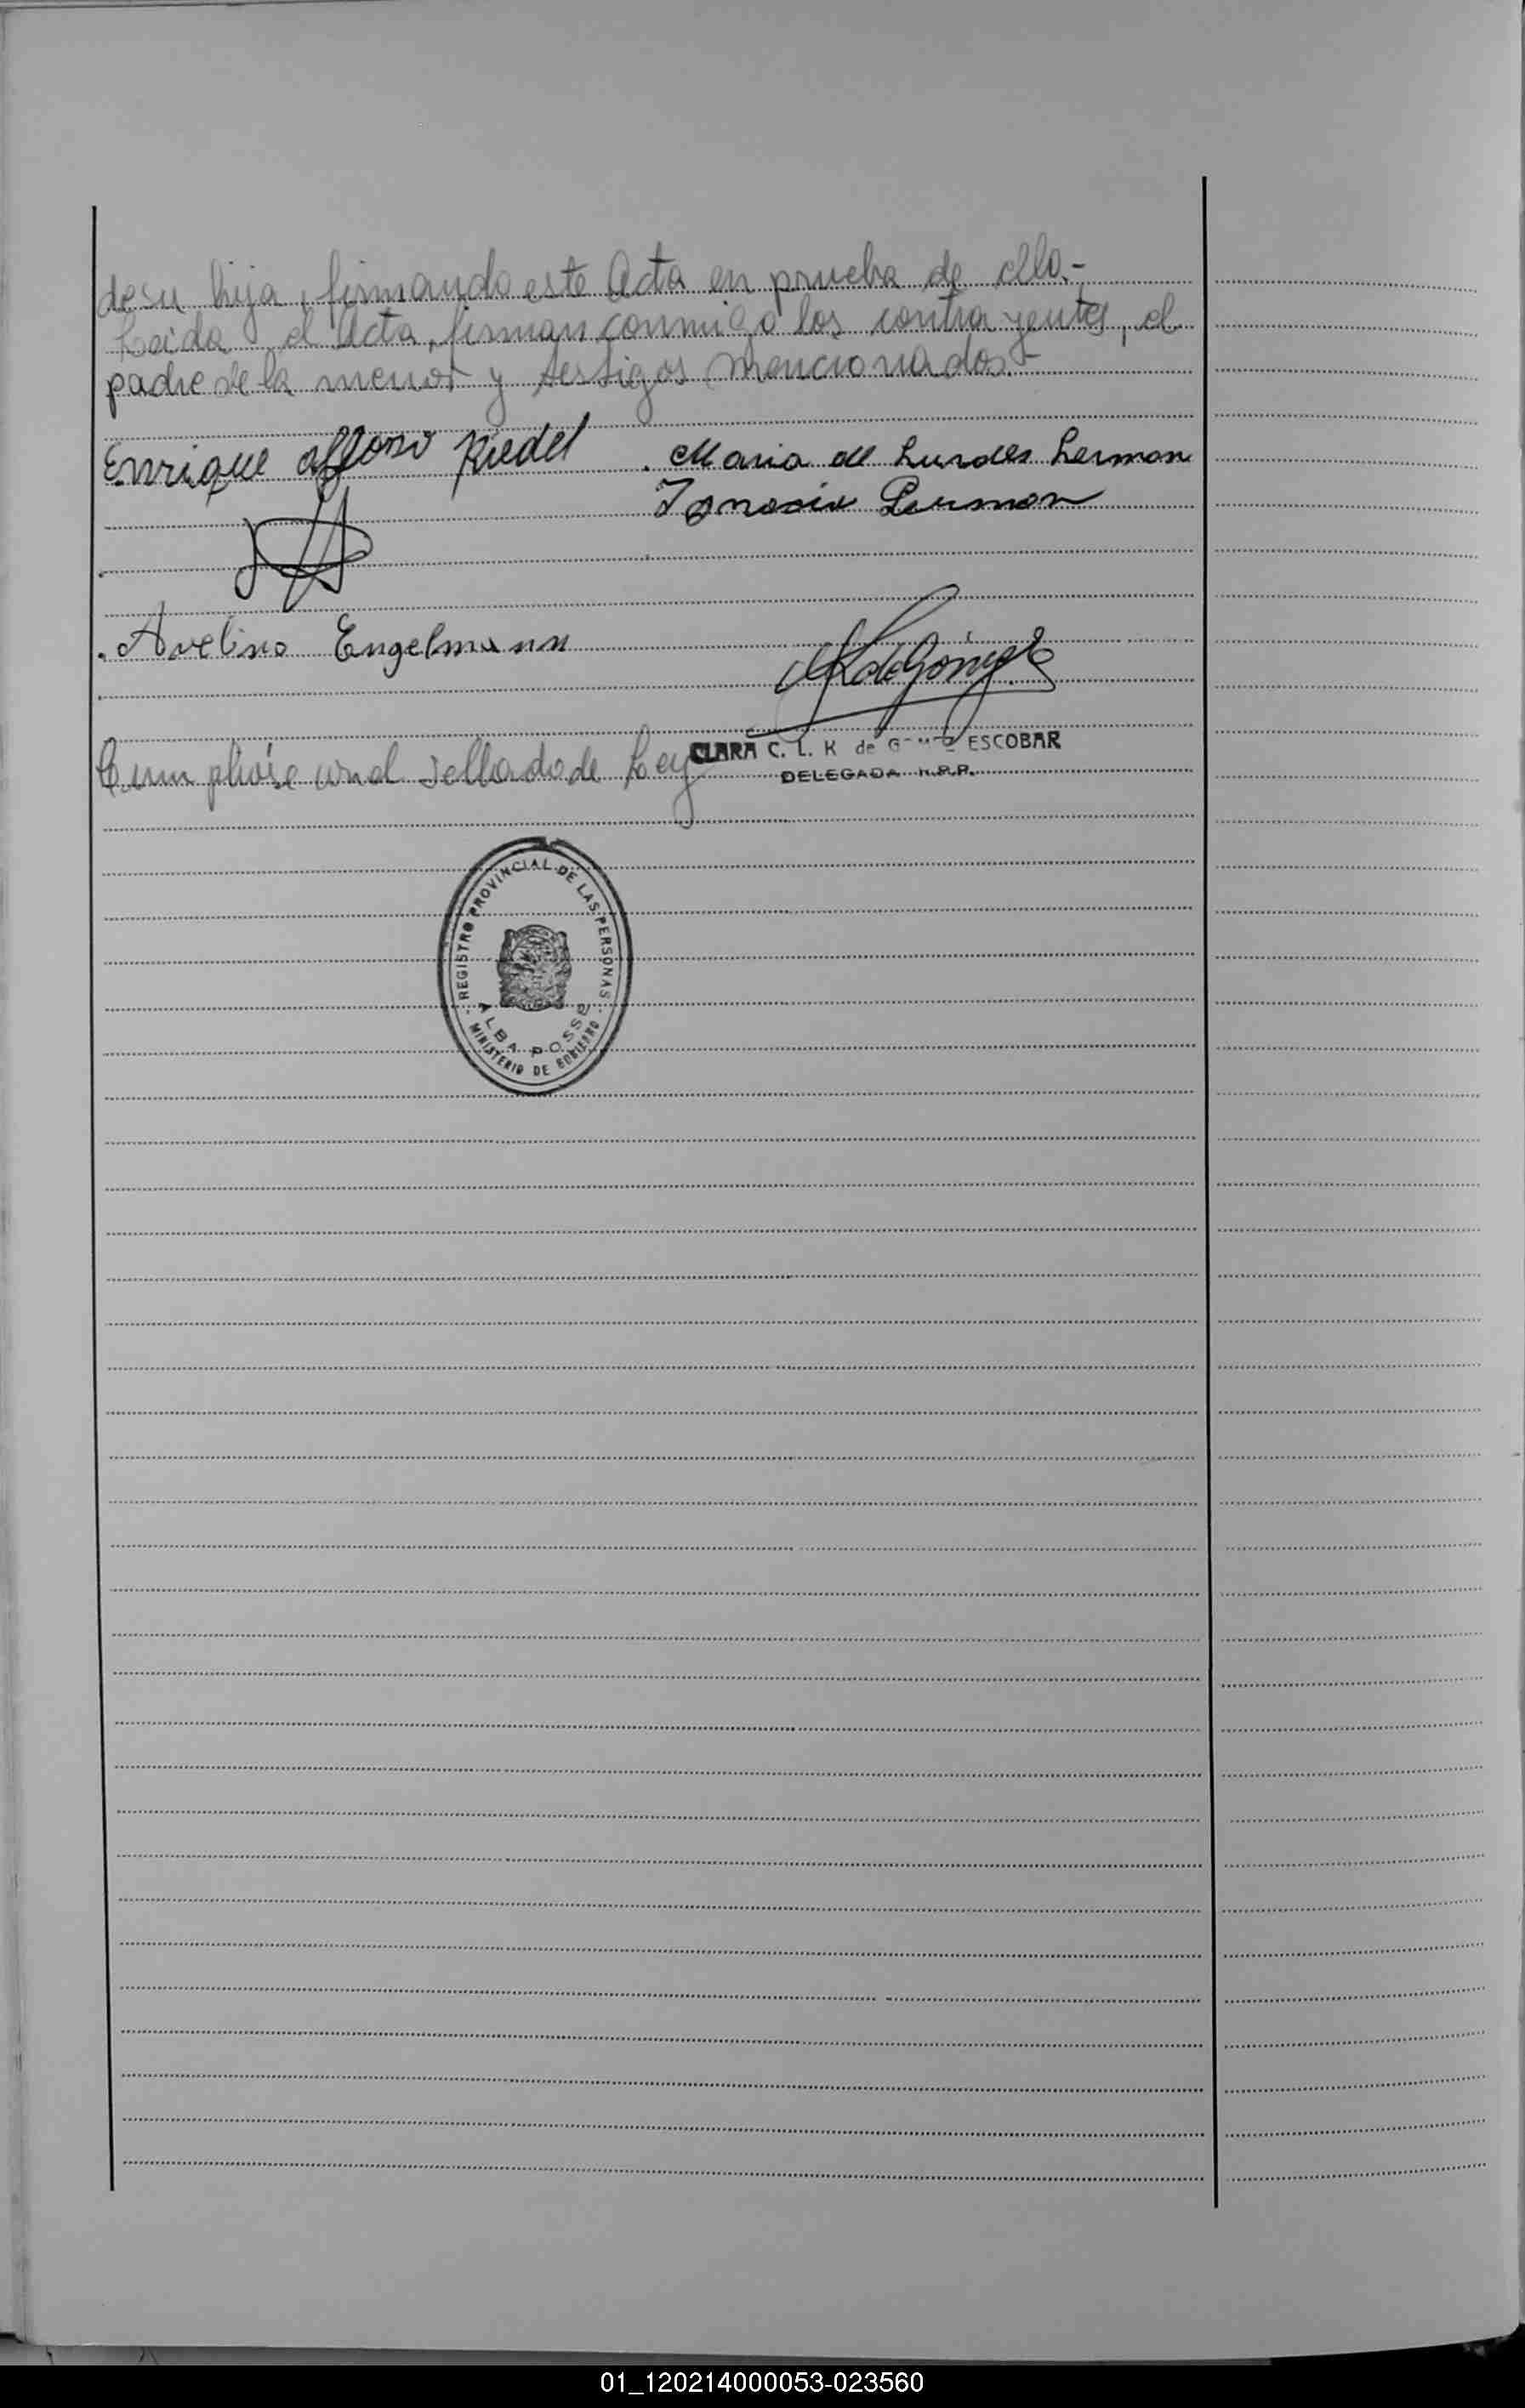 de su hija, firmando este Acta en prueba de ello.-
Leida el Acta, firman conmigo los contrayentes, el
padre de la menor y testigos mencionados.-
Enrique Afonso Riedel . Maria de Lurdes Lerman
Ignacio Lerman
. Avelino Engelmann
CLARA C. L. K de G ESCOBAR
Cumplióse con el sellado de Ley
DELEGADA R.P.P.
REGISTRO PROVINCIAL DE LAS PERSONAS
ALBA POSSE
MINISTERIO DE GOBIERNO
01_120214000053-023560